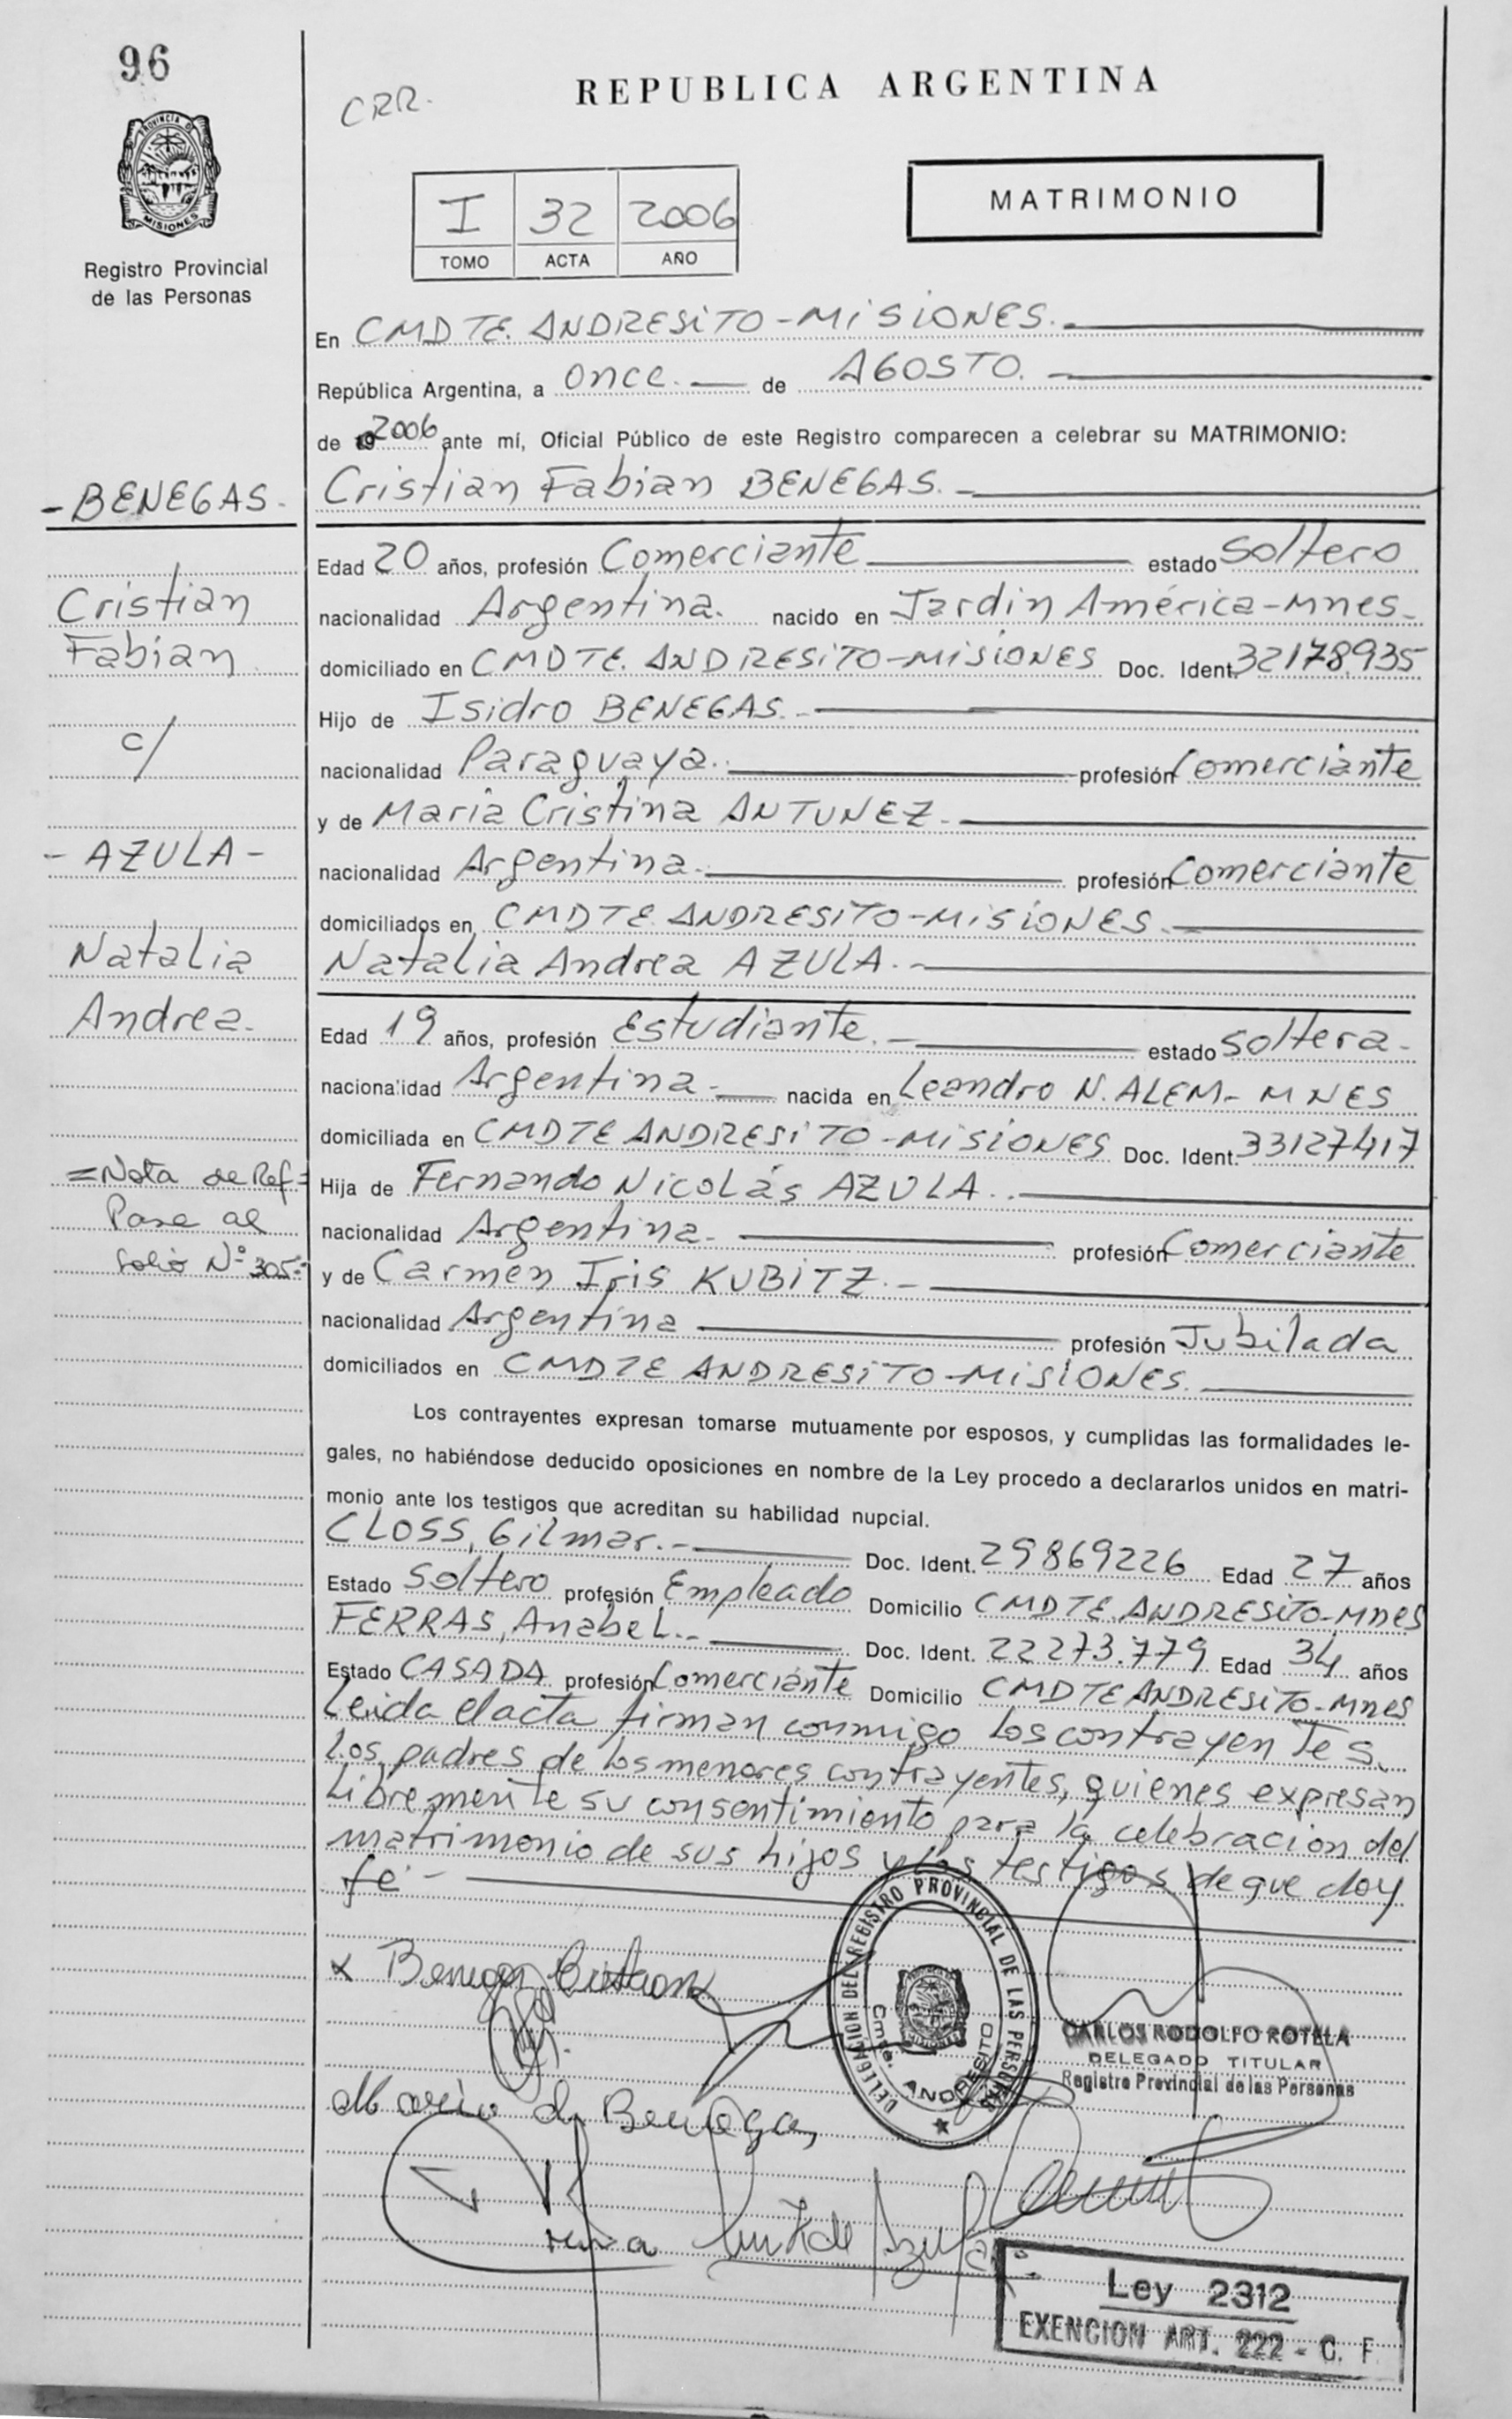 96
CRR.
REPUBLICA ARGENTINA
PROVINCIA DE
MISIONES
Registro Provincial
de las Personas
I 32 2006
TOMO ACTA AÑO
MATRIMONIO
En CMDTE. ANDRESITO-MISIONES.
República Argentina, a once. de AGOSTO.
de 2006 ante mí, Oficial Público de este Registro comparecen a celebrar su MATRIMONIO:
-BENEGAS-
Cristian Fabian BENEGAS.-
Edad 20 años, profesión Comerciante estado Soltero
Cristian
nacionalidad Argentina. nacido en Jardin América-Mnes-
Fabian
domiciliado en CMDTE. ANDRESITO-MISIONES Doc. Ident. 32178935
Hijo de Isidro BENEGAS.-
c/
nacionalidad Paraguaya.- profesión Comerciante
y de Maria Cristina ANTUNEZ.-
- AZULA -
nacionalidad Argentina- profesión Comerciante
domiciliados en CMDTE ANDRESITO-MISIONES.-
Natalia
Natalia Andrea AZULA.-
Andrea.
Edad 19 años, profesión Estudiante.- estado Soltera-
nacionalidad Argentina- nacida en Leandro N. ALEM.- MNES
domiciliada en CMDTE ANDRESITO-MISIONES Doc. Ident. 33127417
=Nota de Ref=
Hija de Fernando Nicolás AZULA.-
Pase al
nacionalidad Argentina- profesión Comerciante
folio N° 305=
y de Carmen Iris KUBITZ.-
nacionalidad Argentina profesión Jubilada
domiciliados en CMDTE ANDRESITO-MISIONES.
Los contrayentes expresan tomarse mutuamente por esposos, y cumplidas las formalidades le-
gales, no habiéndose deducido oposiciones en nombre de la Ley procedo a declararlos unidos en matri-
monio ante los testigos que acreditan su habilidad nupcial.
CLOSS, Gilmar.- Doc. Ident. 29869226 Edad 27 años
Estado Soltero profesión Empleado Domicilio CMDTE.ANDRESITO-Mnes
FERRAS, Anabel.- Doc. Ident. 22273.779 Edad 34 años
Estado CASADA profesión Comerciante Domicilio CMDTE ANDRESITO-Mnes
Leida el acta firman conmigo los contrayentes,
los padres de los menores contrayentes, quienes expresan
libremente su consentimiento para la celebracion del
matrimonio de sus hijos y los testigos de que doy
fe.-
x Benegas Cristian
DELEGACION DEL REGISTRO PROVINCIAL DE LAS PERSONAS
Cmte. ANDRESITO
CARLOS RODOLFO ROTELA
DELEGADO TITULAR
Registro Provincial de las Personas
Maria d Benega,
Ley 2312
EXENCION ART. 222 - C. F.